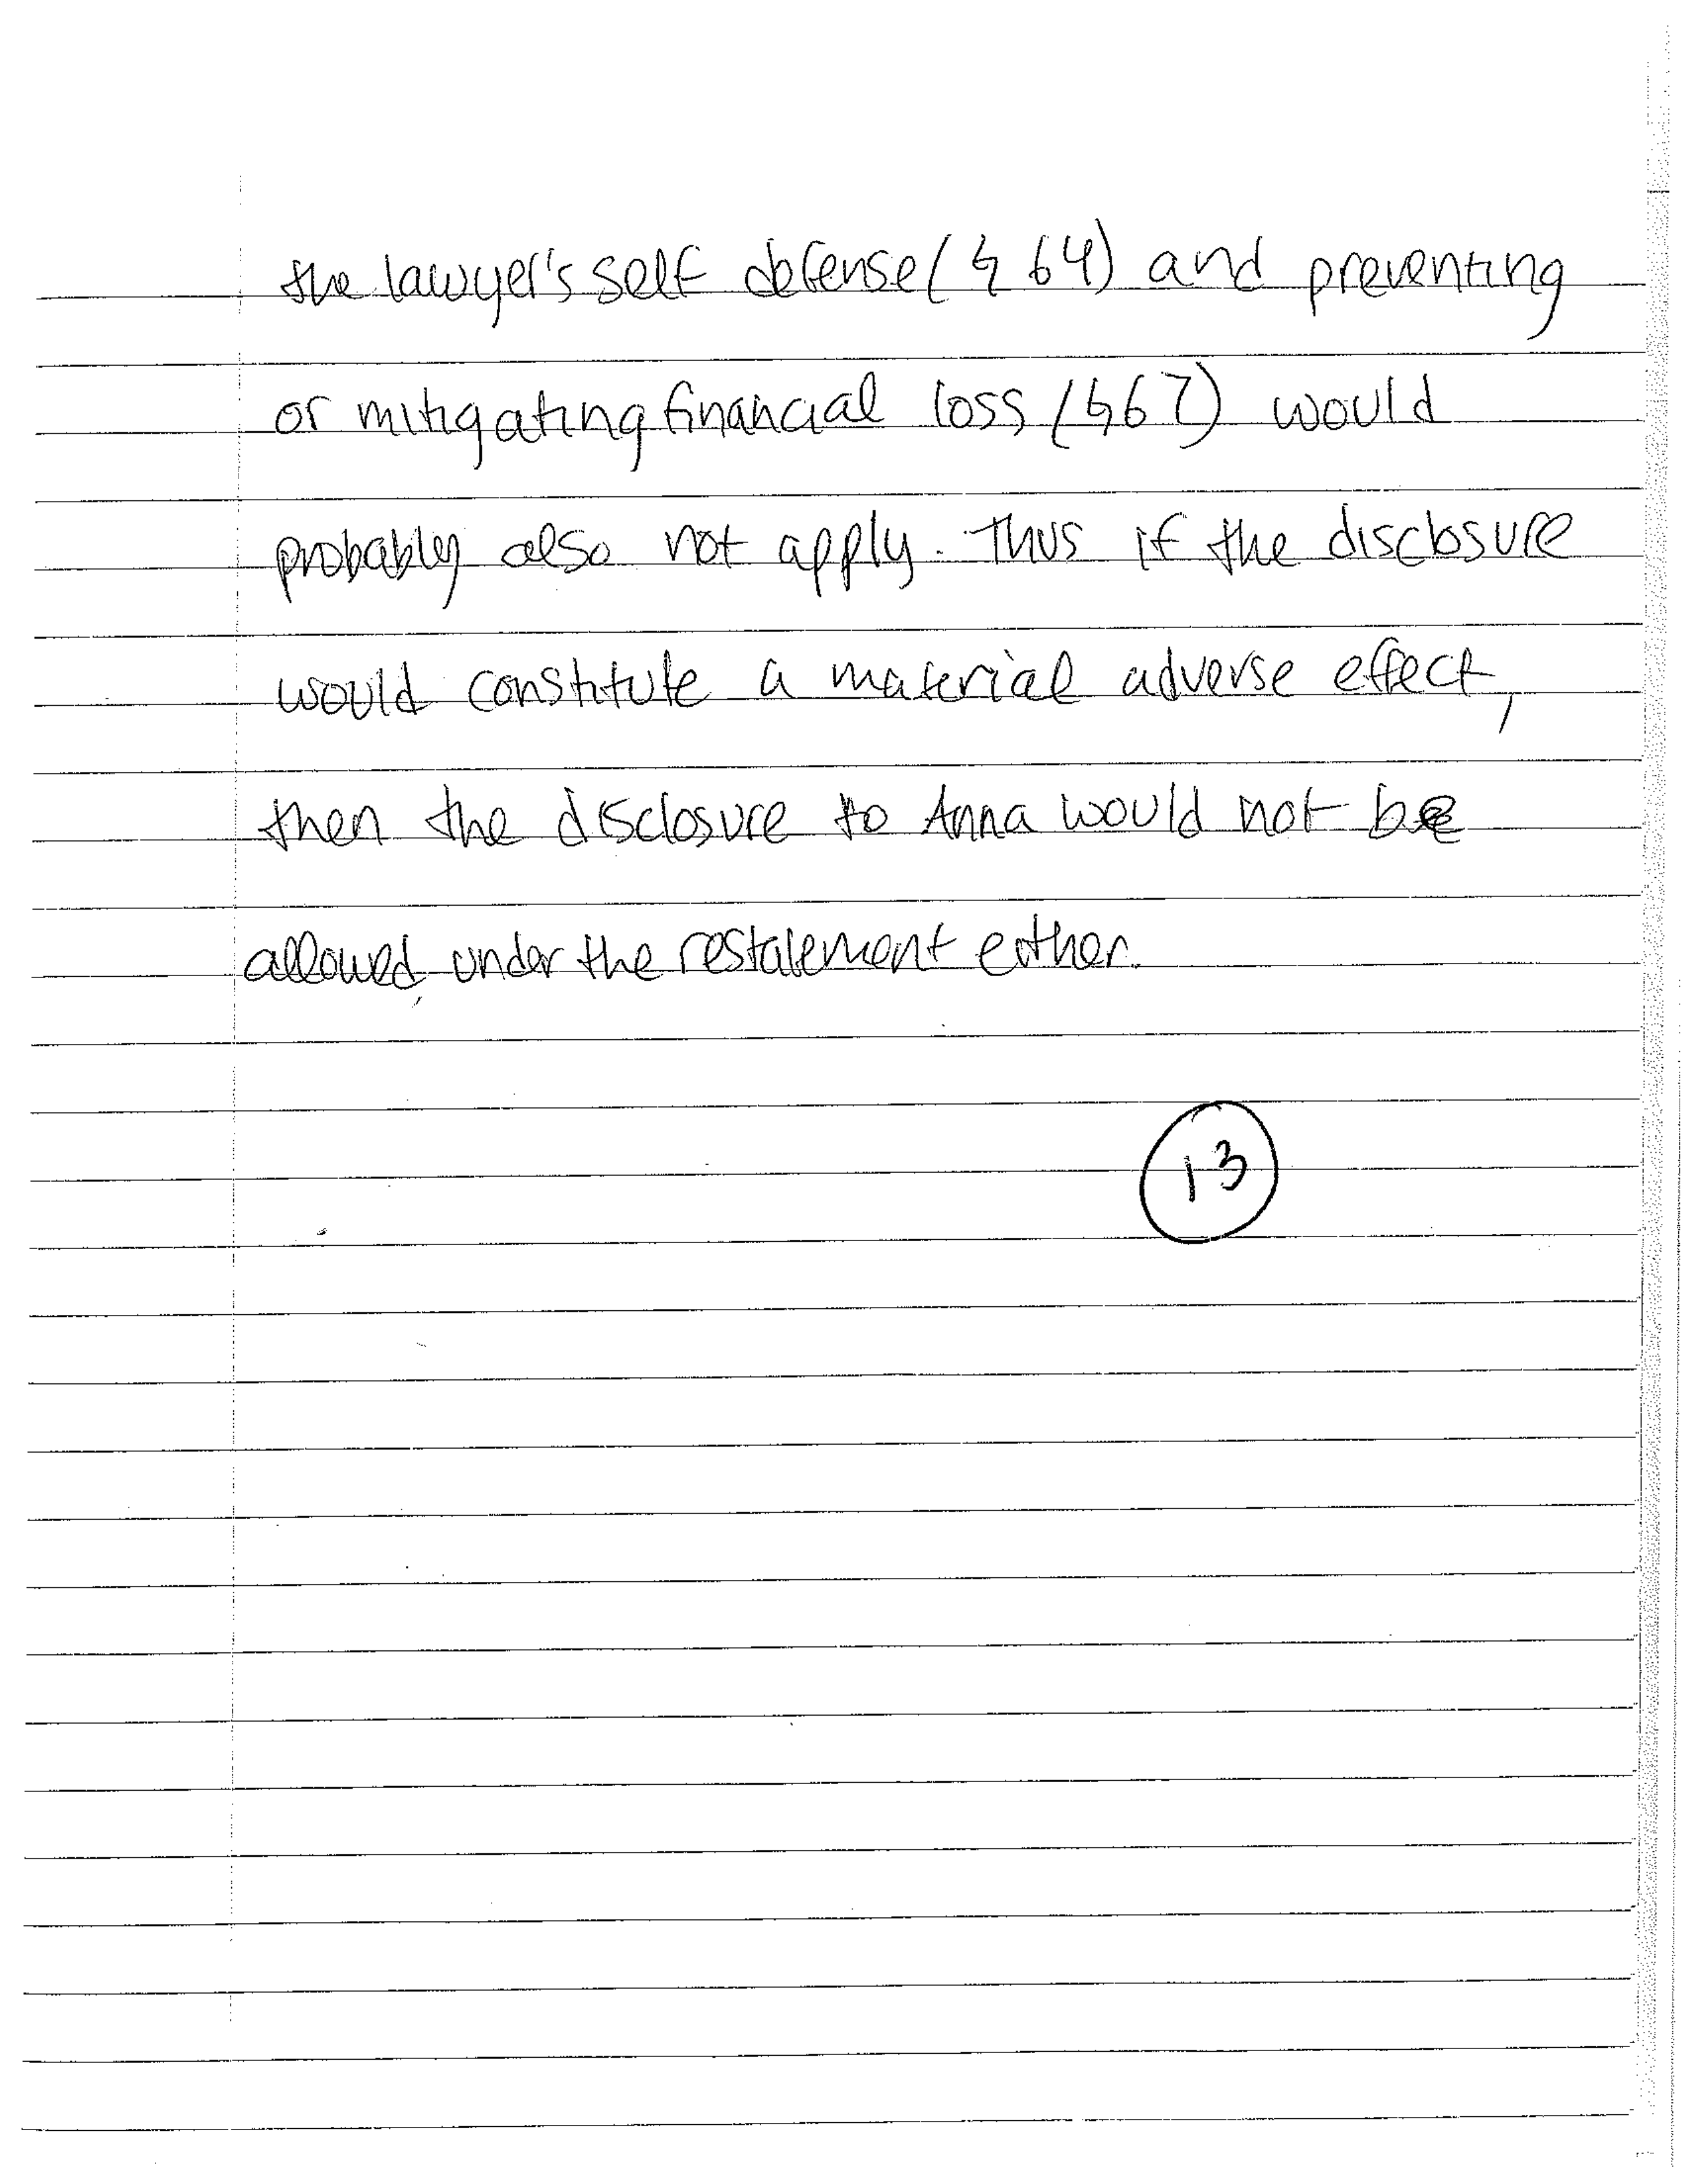 the lawyer's self defense (§ 64) and preventing
or mitigating financial loss (§67) would
probably also not apply. Thus if the disclosure
would constitute a material adverse effect,
then the disclosure to Anna would not be
allowed under the restatement either.
13